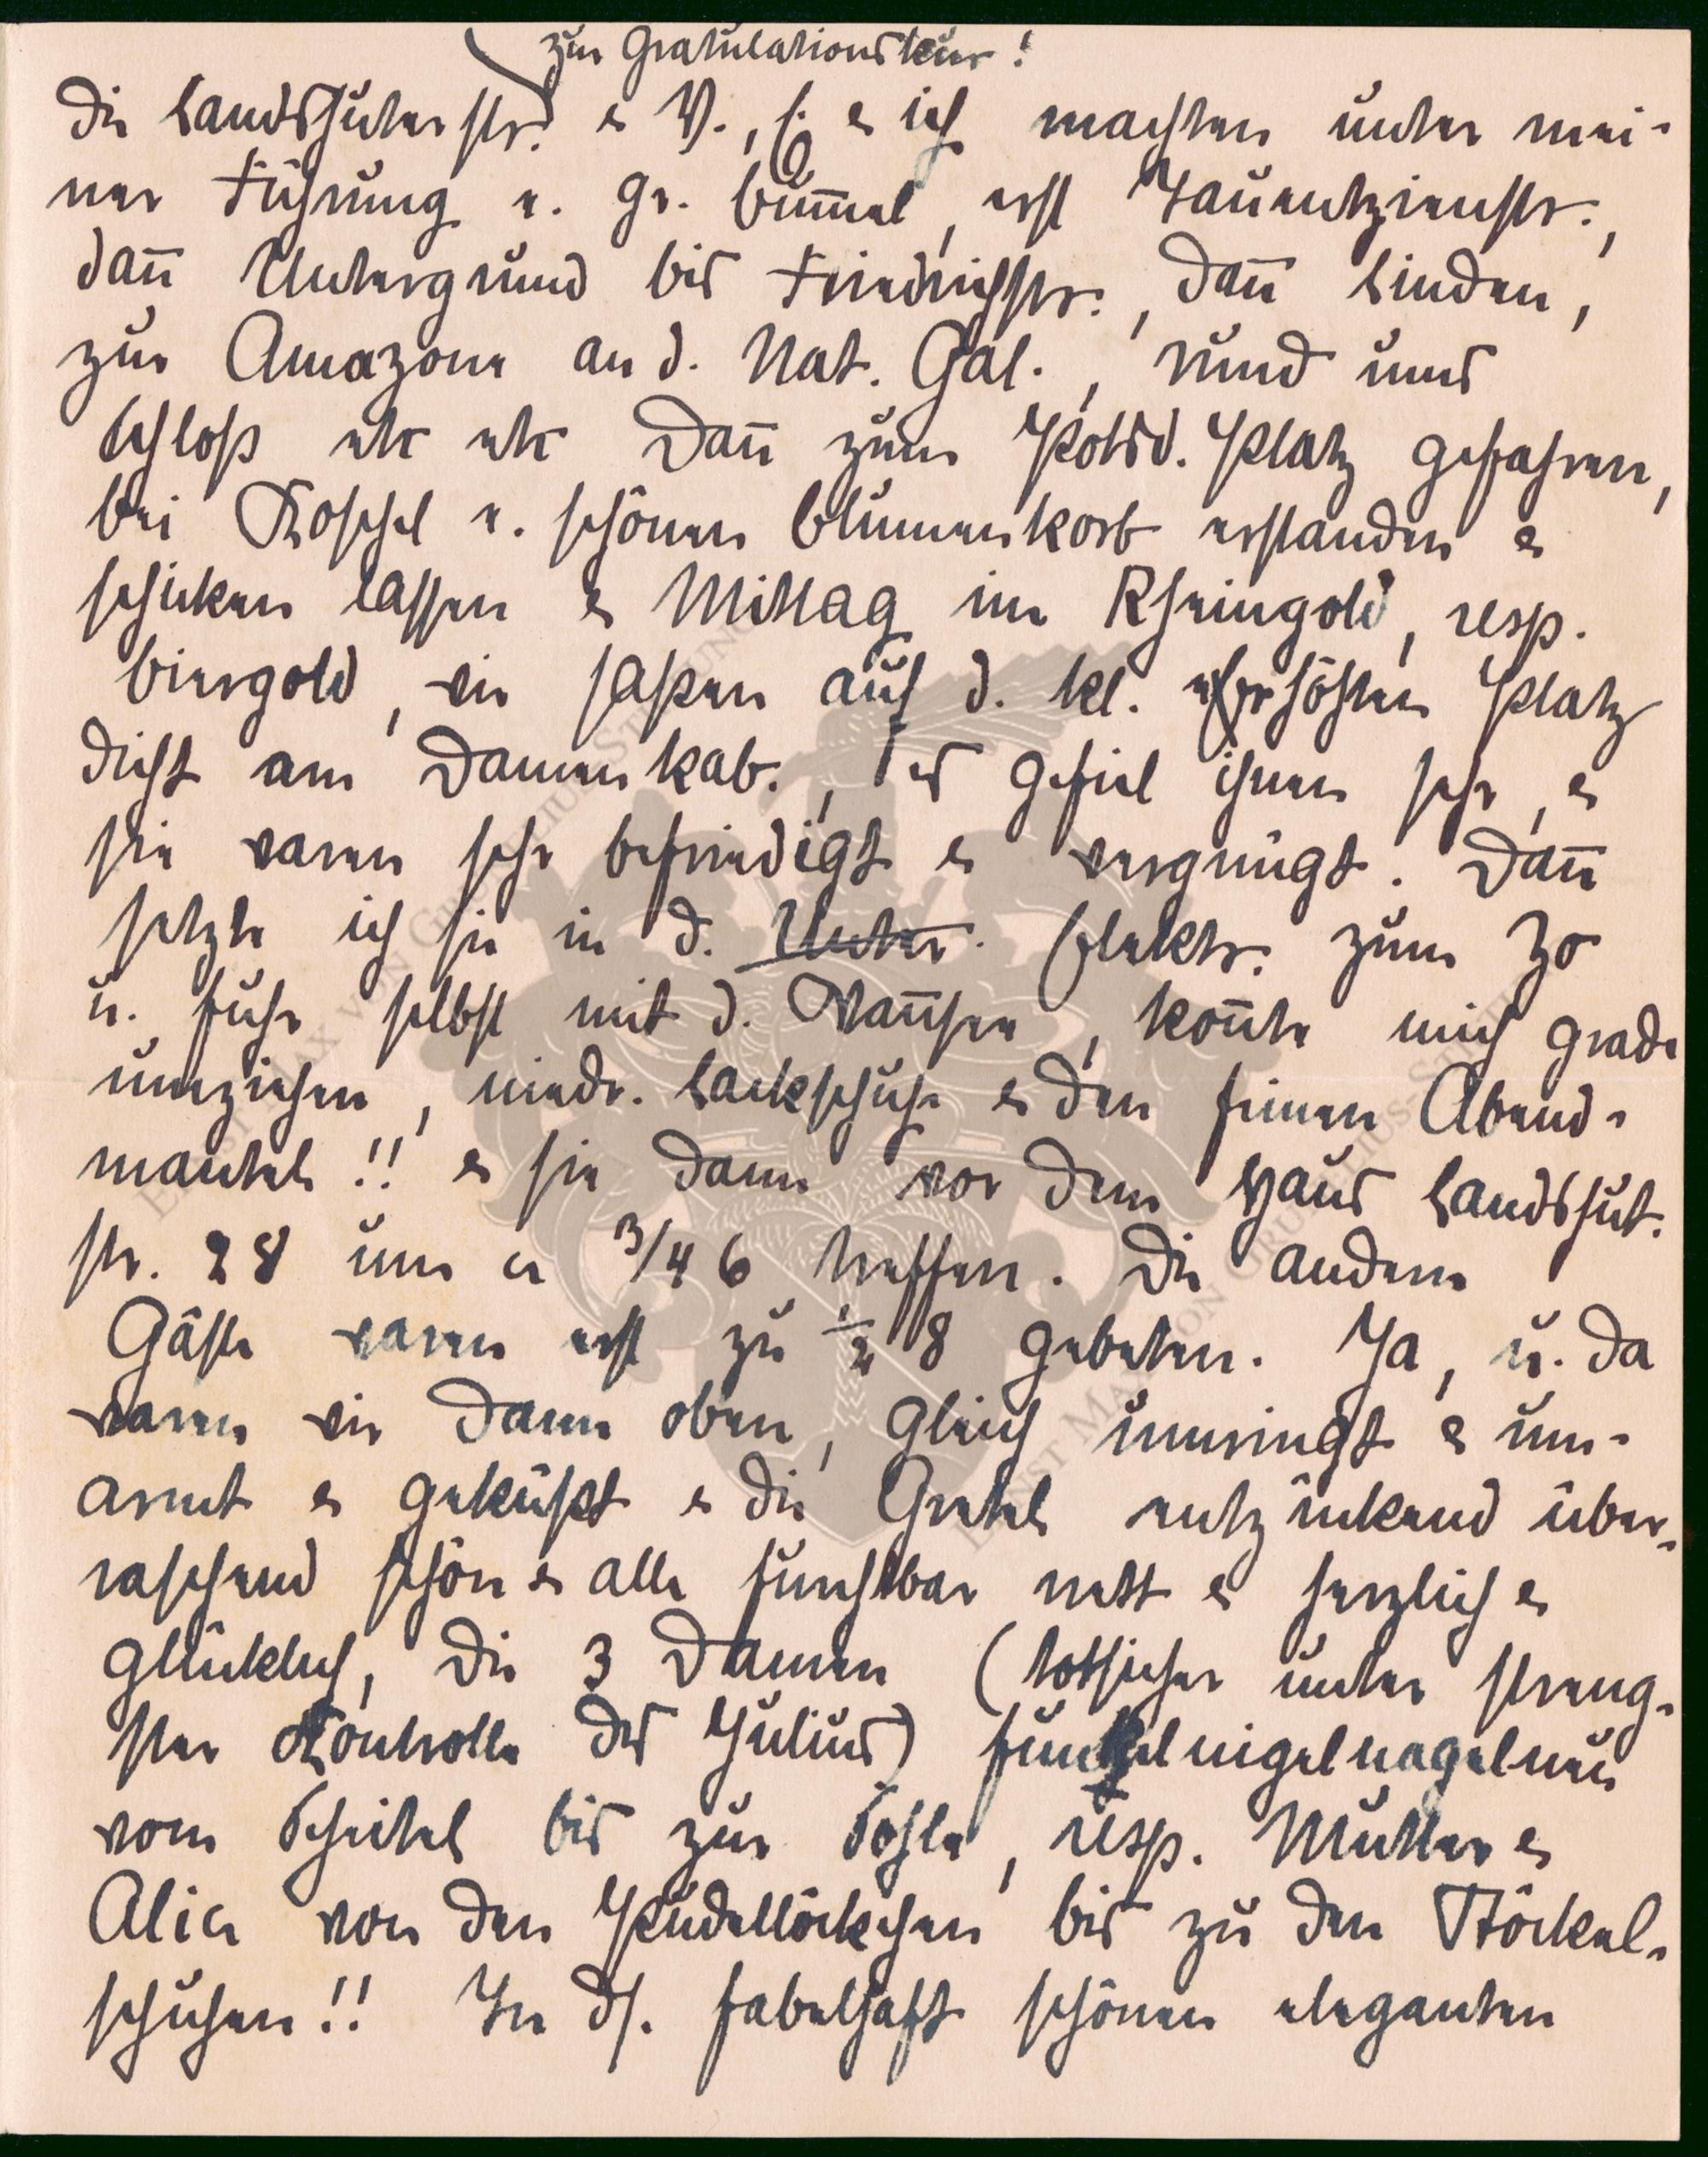 zur Gratulationskur!
die Landshuterstr. & V., E. & ich machten unter mei-
ner Führung e. gr. Bum̅el, erst Tauentzienstr.,
dan̅ Untergrund bis Friedrichstr., dan̅ Linden,
zur Amazone an d. Nat. Gal., rund ums
Schloß etc etc Dan̅ zum Potsd. Platz gefahren,
bei Koschel e. schönen Blumenkorb erstanden &
schicken lassen & Mittag im Rheingold, resp.
Biergold, wir saßen auf d. kl. erhöhten Platz
dicht am Damenkab., es gefiel ihnen sehr, &
sie waren sehr befriedigt & vergnügt. Dan̅
setzte ich sie in d. Unter. Elektr. zum Zo
u. fuhr selbst mit d. Wan̅see, kon̅te mich grade
umziehen, niedr. Lackschuhe & den feinen Abend-
mantel!! & sie dann vor dem Haus Landshut.
str. 28 um ca 3/4 6 treffen. Die andern
Gäste waren erst zu 1/2 8 gebeten. Ja, u. da
waren wir dann oben, gleich umringt & um-
armt & geküßt & die Gretel entzückend über-
raschend schön & alle furchtbar nett & herzlich &
glücklich, die 3 Damen (totsicher unter streng-
ster Kontrolle des Julius) funkelnigelnagelneu
vom Scheitel bis zur Sohle, resp. Mutter &
Alice von den Pudellöckchen bis zu den Stöckel-
schuhen!! In ds. fabelhaft schönen eleganten
ERNST MAX VON GRUNELIUS-STIFTUNG
ERNST MAX VON GRUNELIUS-STIFTUNG